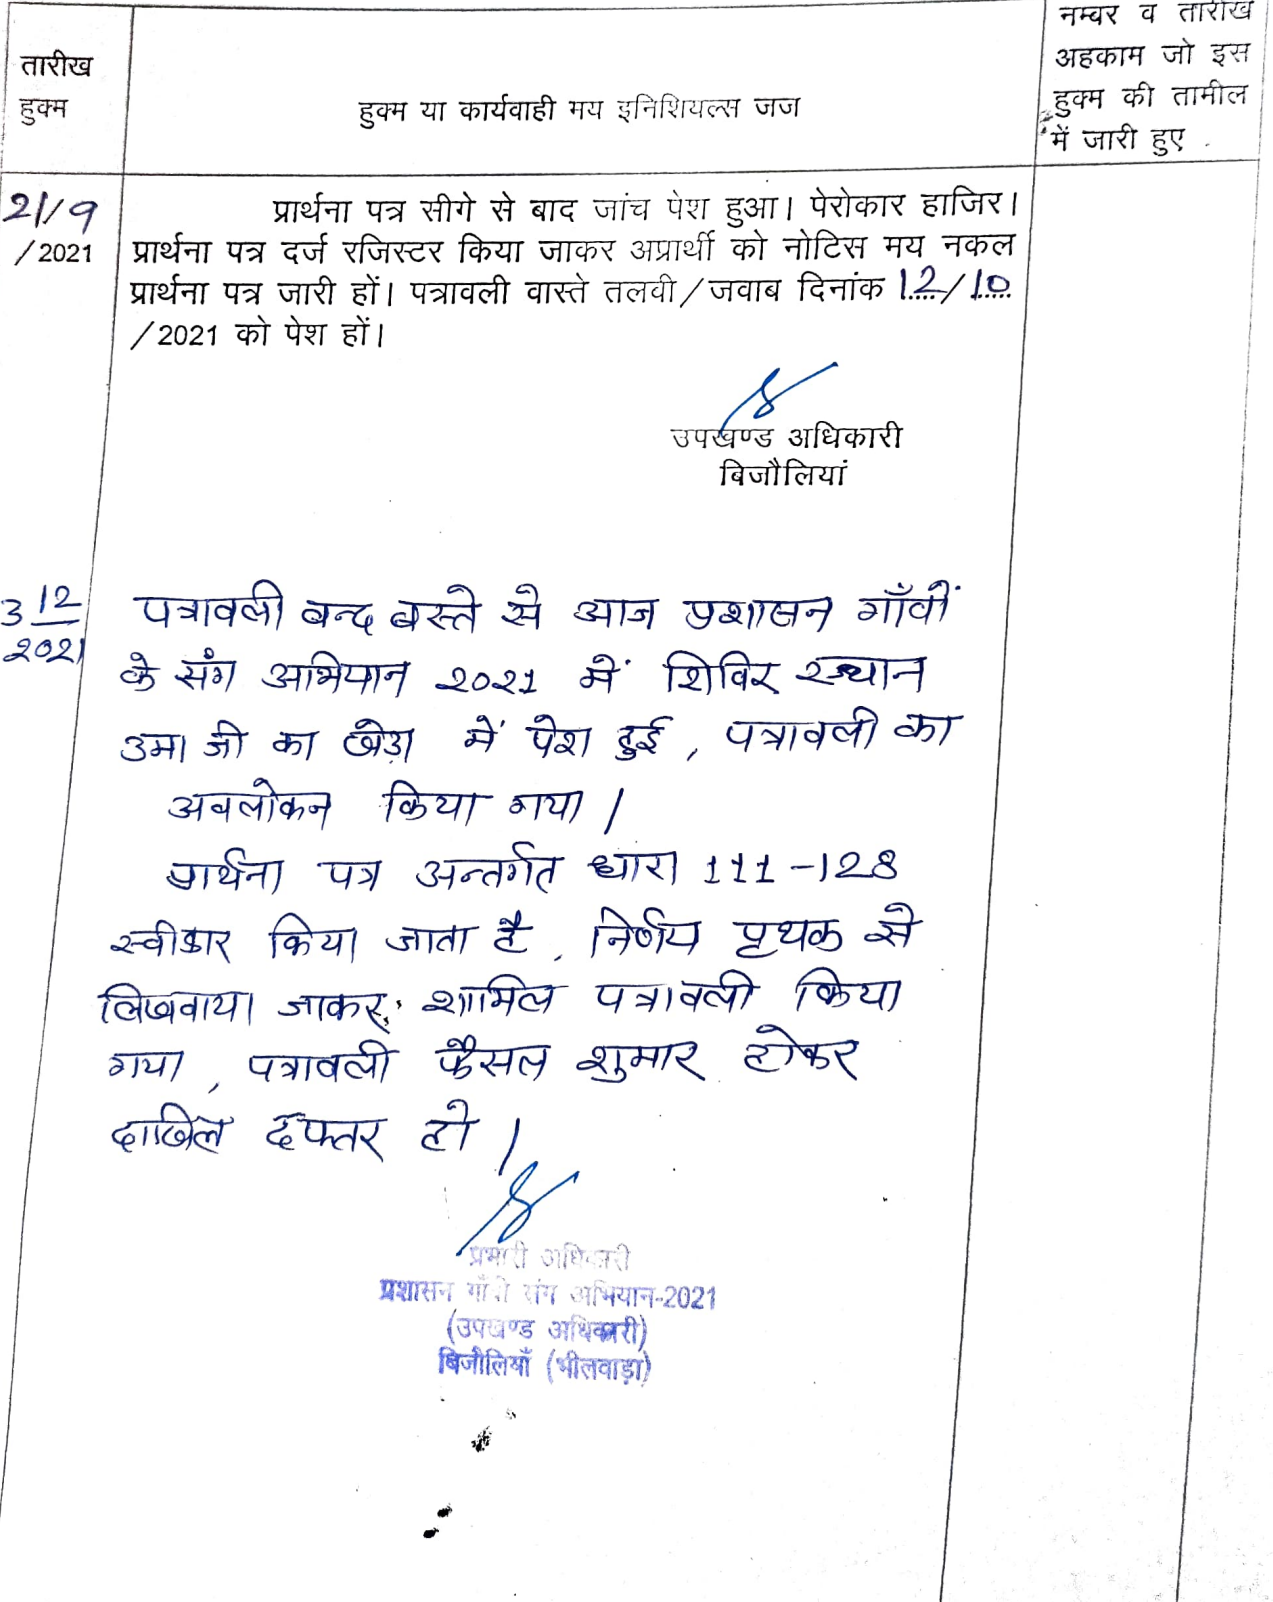 तारीख
हुक्म
हुक्म या कार्यवाही मय इनिशियल्स जज
नम्बर व तारीख
अहकाम जो इस
हुक्म की तामील
में जारी हुए
21/9
/2021
प्रार्थना पत्र सीगे से बाद जांच पेश हुआ। पेरोकार हाजिर।
प्रार्थना पत्र दर्ज रजिस्टर किया जाकर अप्रार्थी को नोटिस मय नकल
प्रार्थना पत्र जारी हों। पत्रावली वास्ते तलवी/जवाब दिनांक 12/10
/2021 को पेश हों।
उपखण्ड अधिकारी
बिजौलियां
3 12
2021
पत्रावली बन्द बस्ते से आज प्रशासन गाँवों
के संग अभियान 2021 में शिविर स्थान
उमा जी का खेड़ा में पेश हुई, पत्रावली का
अवलोकन किया गया।
प्रार्थना पत्र अन्तर्गत धारा 111-128
स्वीकार किया जाता है, निर्णय पृथक से
लिखवाया जाकर, शामिल पत्रावली किया
गया, पत्रावली फैसल शुमार होकर
दाखिल दफ्तर हो।
प्रभारी अधिकारी
प्रशासन गाँवों संग अभियान-2021
(उपखण्ड अधिकारी)
बिजौलियाँ (भीलवाड़ा)